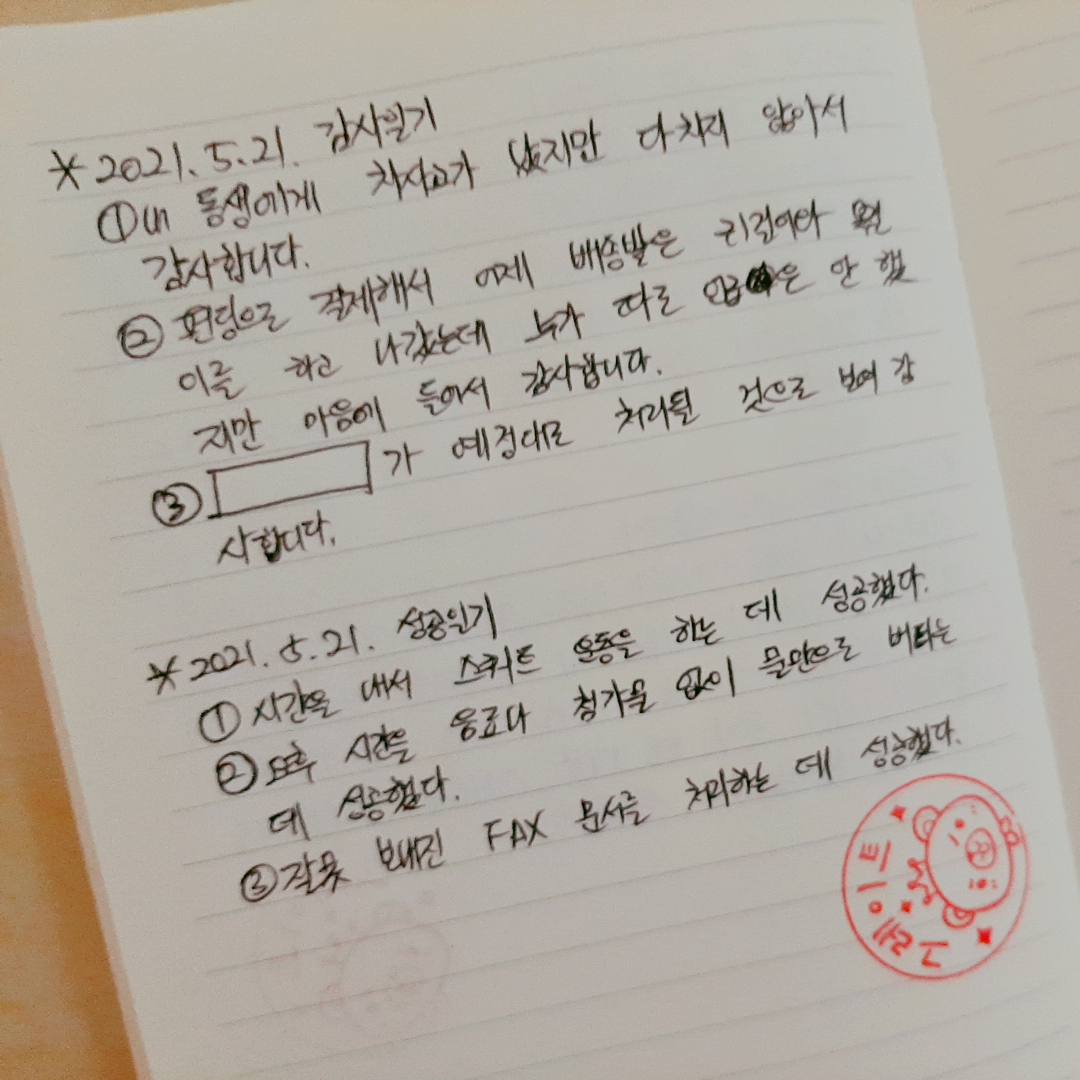 * 2021. 5. 21. 감사일기
① 동생에게 차사고가 났지만 다치지 않아서
감사합니다.
② 펀딩으로 결제해서 어제 배송받은 귀걸이와
이를 하고 나갔는데 누가 따로 언급은 안 했
지만 마음에 들어서 감사합니다.
③ 가 예정대로 처리될 것으로 보여 감
사합니다.
* 2021. 5. 21. 성공일기
① 시간을 내서 스쿼트 운동을 하는 데 성공했다.
② 오후 시간을 음료나 첨가물 없이 물만으로 버티는
데 성공했다.
③ 잘못 보내진 FAX 문서를 처리하는 데 성공했다.
그레이트